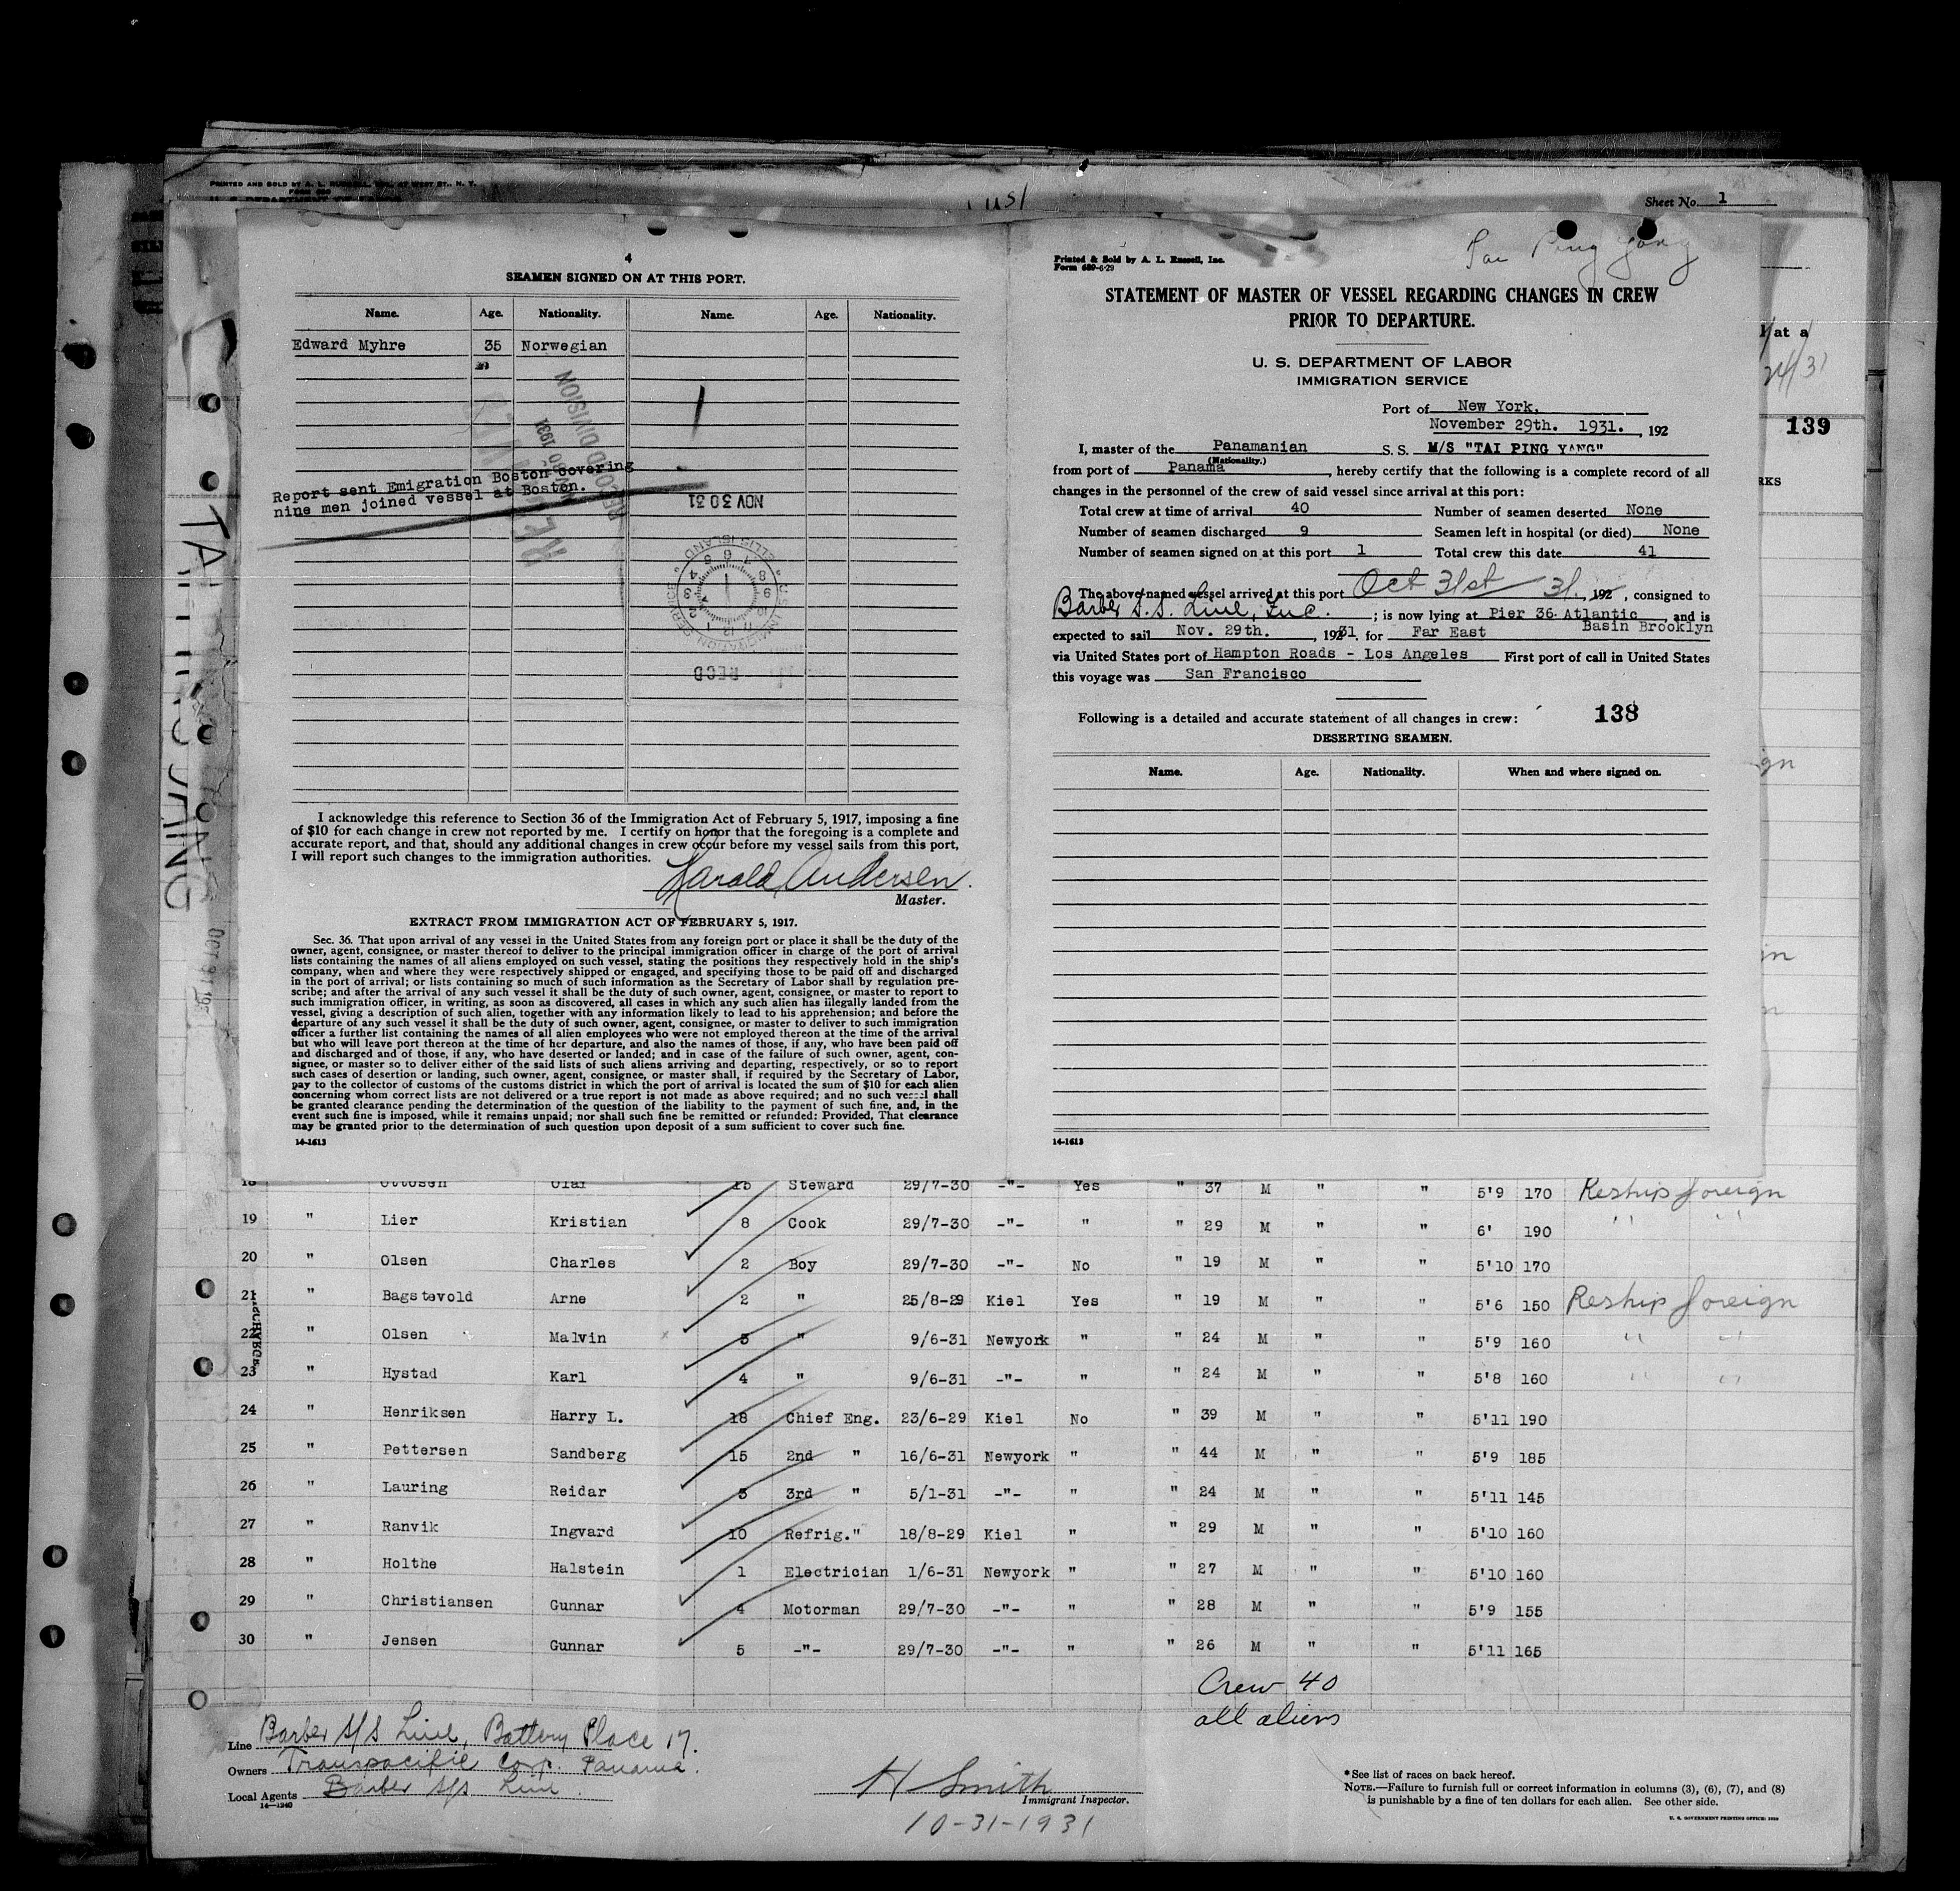 PRINTED AND SOLD BY A. L. RUSSELL, INC., 
Sheet No. 1
4
SEAMEN SIGNED ON AT THIS PORT.
Name. Age. Nationality. Name. Age. Nationality.
Edward Myhre 35 Norwegian
Report sent Emigration Boston covering
nine men joined vessel at Boston.
RECORD DIVISION
1931
NOV 30 31
U.S. IMMIGRATION SERVICE
ELLIS ISLAND
RECD
I acknowledge this reference to Section 36 of the Immigration Act of February 5, 1917, imposing a fine
of $10 for each change in crew not reported by me. I certify on honor that the foregoing is a complete and
accurate report, and that, should any additional changes in crew occur before my vessel sails from this port,
I will report such changes to the immigration authorities.
Harald Andersen.
Master.
EXTRACT FROM IMMIGRATION ACT OF FEBRUARY 5, 1917.
Sec. 36. That upon arrival of any vessel in the United States from any foreign port or place it shall be the duty of the
owner, agent, consignee, or master thereof to deliver to the principal immigration officer in charge of the port of arrival
lists containing the names of all aliens employed on such vessel, stating the positions they respectively hold in the ship's
company, when and where they were respectively shipped or engaged, and specifying those to be paid off and discharged
in the port of arrival; or lists containing so much of such information as the Secretary of Labor shall by regulation pre-
scribe; and after the arrival of any such vessel it shall be the duty of such owner, agent, consignee, or master to report to
such immigration officer, in writing, as soon as discovered, all cases in which any such alien has illegally landed from the
vessel, giving a description of such alien, together with any information likely to lead to his apprehension; and before the
departure of any such vessel it shall be the duty of such owner, agent, consignee, or master to deliver to such immigration
officer a further list containing the names of all alien employees who were not employed thereon at the time of the arrival
but who will leave port thereon at the time of her departure, and also the names of those, if any, who have been paid off
and discharged and of those, if any, who have deserted or landed; and in case of the failure of such owner, agent, con-
signee, or master so to deliver either of the said lists of such aliens arriving and departing, respectively, or so to report
such cases of desertion or landing, such owner, agent, consignee, or master shall, if required by the Secretary of Labor,
pay to the collector of customs of the customs district in which the port of arrival is located the sum of $10 for each alien
concerning whom correct lists are not delivered or a true report is not made as above required; and no such vessel shall
be granted clearance pending the determination of the question of the liability to the payment of such fine, and, in the
event such fine is imposed, while it remains unpaid; nor shall such fine be remitted or refunded: Provided, That clearance
may be granted prior to the determination of such question upon deposit of a sum sufficient to cover such fine.
14-1613
Tai Ping Yang
Printed & Sold by A. L. Russell, Inc.
Form 689-6-29
STATEMENT OF MASTER OF VESSEL REGARDING CHANGES IN CREW
PRIOR TO DEPARTURE.
U. S. DEPARTMENT OF LABOR
IMMIGRATION SERVICE
Port of New York,
November 29th. 1931. , 192
I, master of the Panamanian S. S. M/S "TAI PING YANG"
(Nationality.)
from port of Panama , hereby certify that the following is a complete record of all
changes in the personnel of the crew of said vessel since arrival at this port:
Total crew at time of arrival 40 Number of seamen deserted None
Number of seamen discharged 9 Seamen left in hospital (or died) None
Number of seamen signed on at this port 1 Total crew this date 41
The above-named vessel arrived at this port Oct 31st 31. , 192 , consigned to
Barber S.S. Line, Inc. ; is now lying at Pier 36 Atlantic , and is
Basin Brooklyn
expected to sail Nov. 29th. , 1931 for Far East
via United States port of Hampton Roads - Los Angeles First port of call in United States
this voyage was San Francisco
Following is a detailed and accurate statement of all changes in crew: 138
DESERTING SEAMEN.
Name. Age. Nationality. When and where signed on.
14-1613
at a
24/31
139
RKS
TAI PING YANG
18 Ottosen Olaf 15 Steward 29/7-30 -"- Yes " 37 M " " 5'9 170 Reship foreign
19 " Lier Kristian 8 Cook 29/7-30 -"- " " 29 M " " 6' 190 " "
20 " Olsen Charles 2 Boy 29/7-30 -"- No " 19 M " " 5'10 170
21 " Bagstevold Arne 2 " 25/8-29 Kiel Yes " 19 M " " 5'6 150 Reship foreign
22 " Olsen Malvin 3 " 9/6-31 Newyork " " 24 M " " 5'9 160 " "
23 " Hystad Karl 4 " 9/6-31 -"- " " 24 M " " 5'8 160 " "
24 " Henriksen Harry L. 18 Chief Eng. 23/6-29 Kiel No " 39 M " " 5'11 190
25 " Pettersen Sandberg 15 2nd " 16/6-31 Newyork " " 44 M " " 5'9 185
26 " Lauring Reidar 3 3rd " 5/1-31 -"- " " 24 M " " 5'11 145
27 " Ranvik Ingvard 10 Refrig." 18/8-29 Kiel " " 29 M " " 5'10 160
28 " Holthe Halstein 1 Electrician 1/6-31 Newyork " " 27 M " " 5'10 160
29 " Christiansen Gunnar 4 Motorman 29/7-30 -"- " " 28 M " " 5'9 155
30 " Jensen Gunnar 5 -"- 29/7-30 -"- " " 26 M " " 5'11 165
Crew 40
all aliens
Line Barber S/S Line, Battery Place 17.
Owners Transpacific Corp. Panama.
Local Agents Barber S/S Line.
14-1240
H Smith
Immigrant Inspector.
10-31-1931
*See list of races on back hereof.
NOTE.—Failure to furnish full or correct information in columns (3), (6), (7), and (8)
is punishable by a fine of ten dollars for each alien. See other side.
U. S. GOVERNMENT PRINTING OFFICE